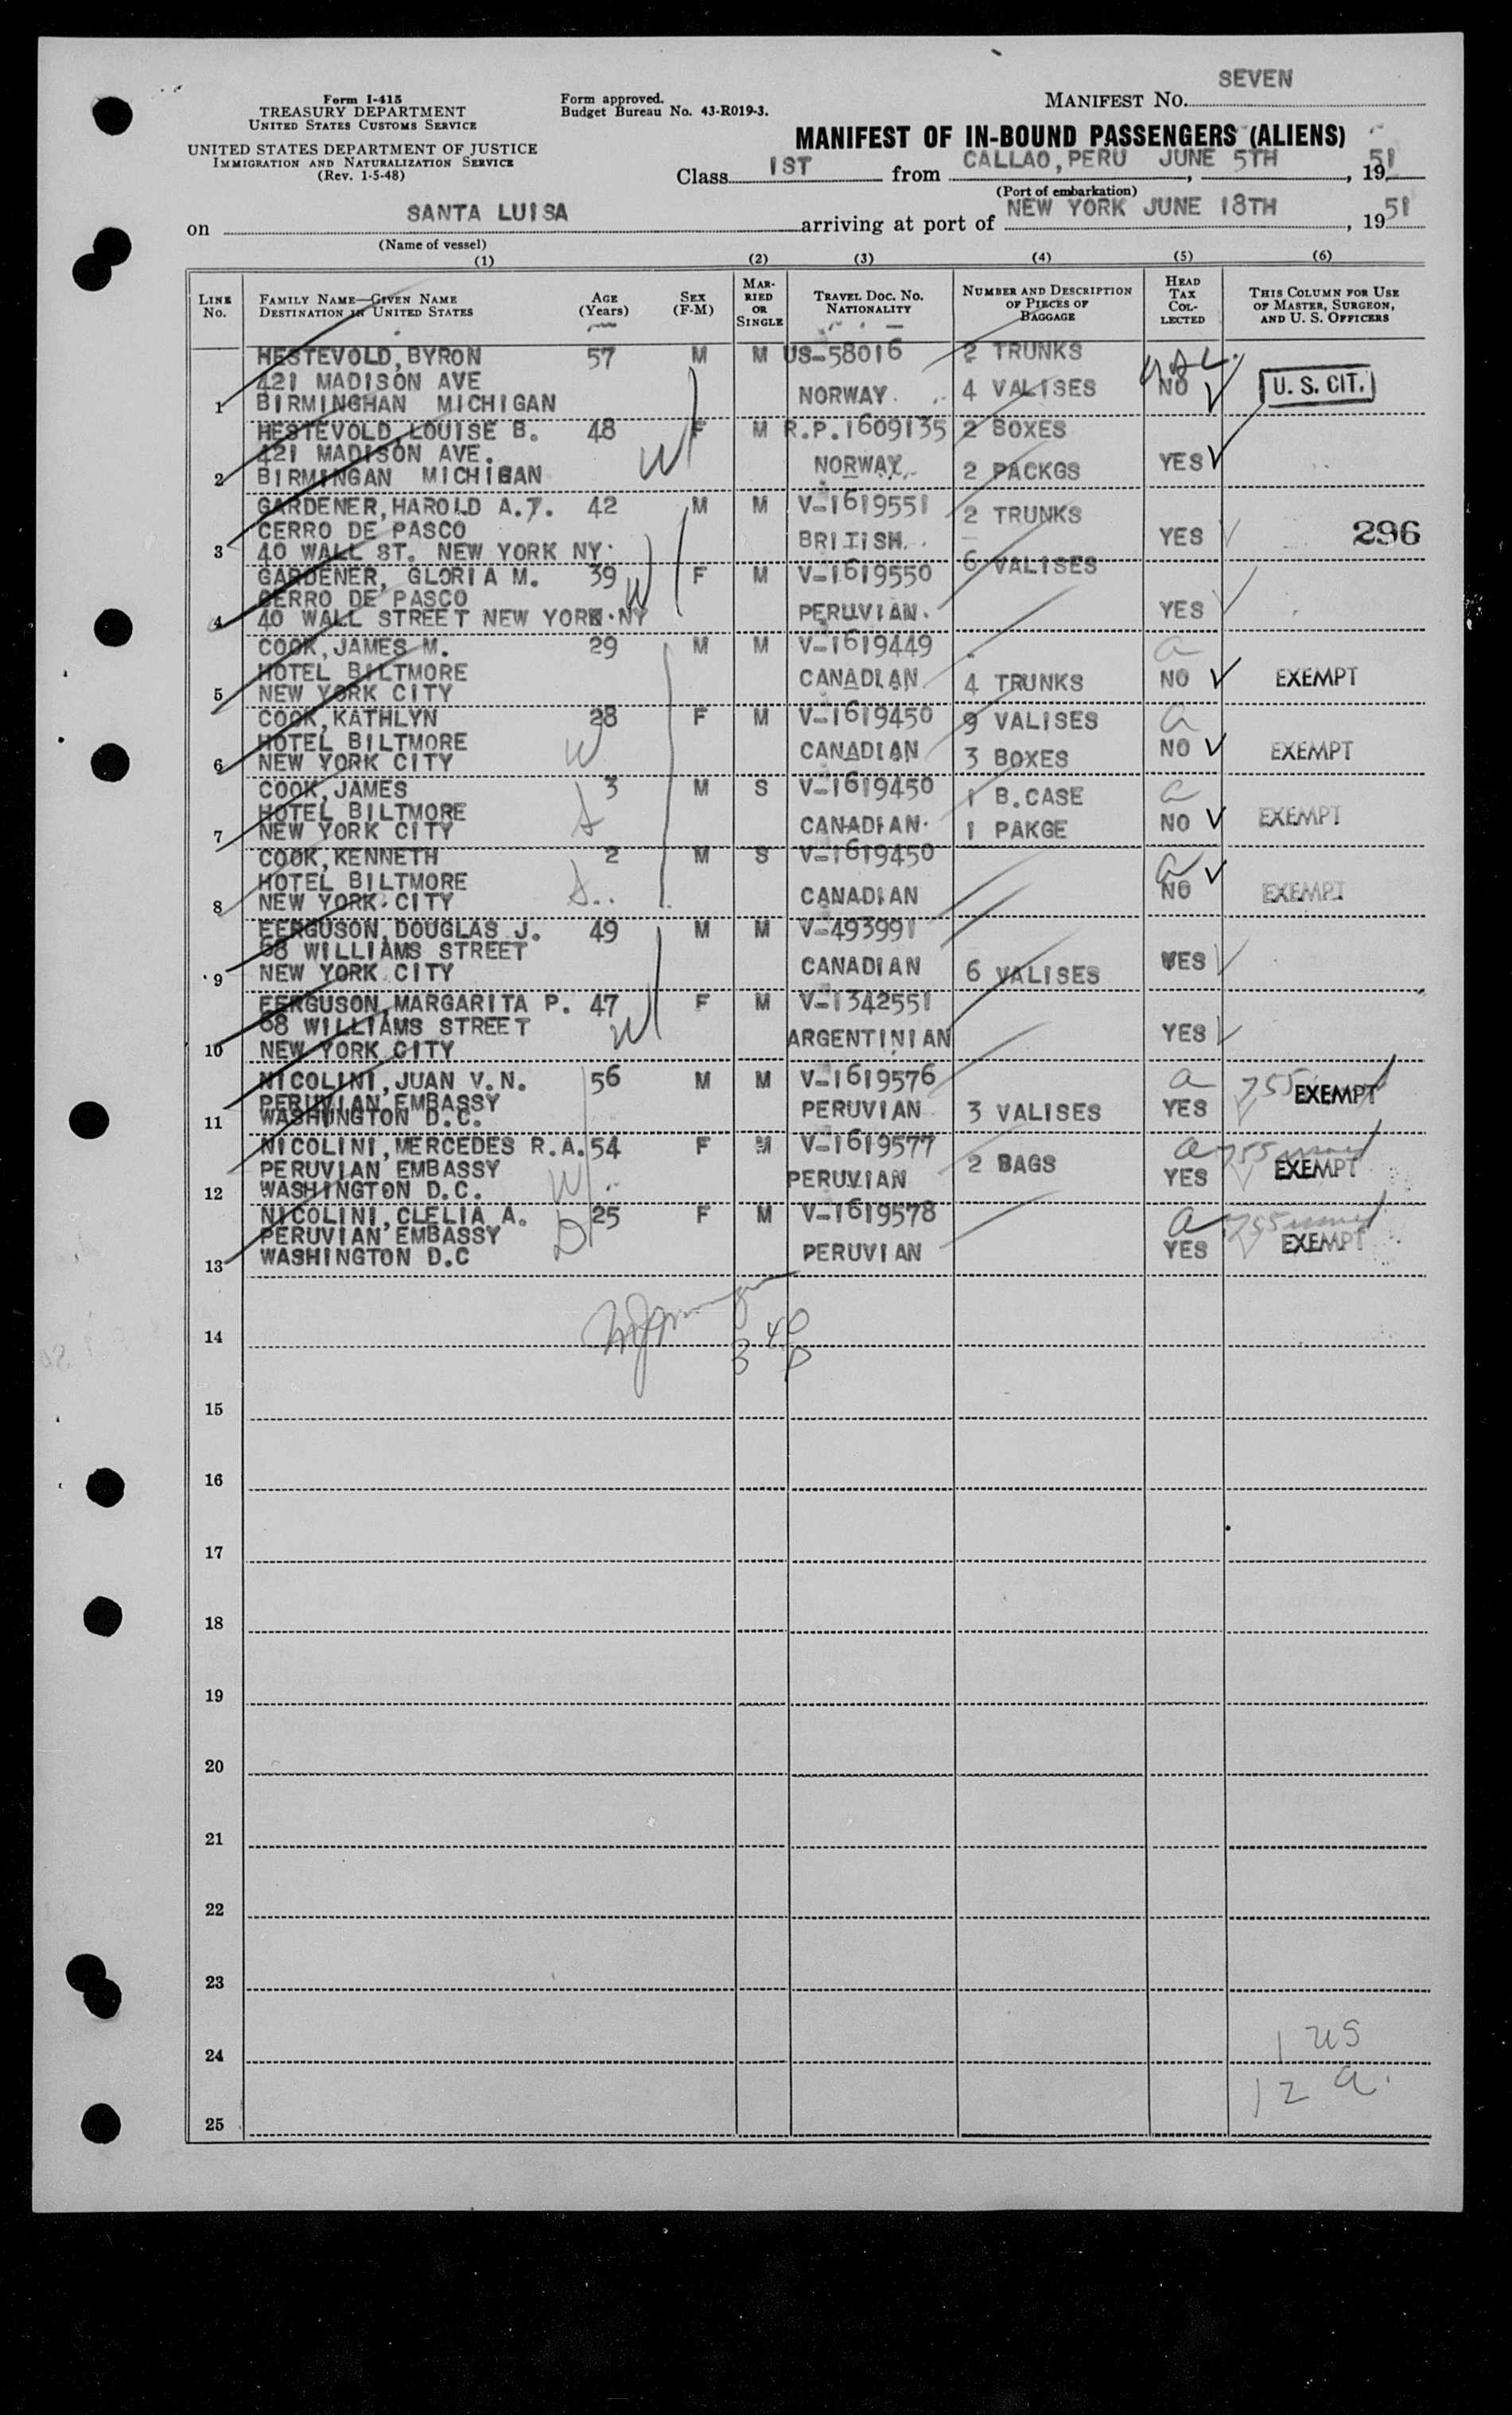 Form I-415
TREASURY DEPARTMENT
UNITED STATES CUSTOMS SERVICE
UNITED STATES DEPARTMENT OF JUSTICE
IMMIGRATION AND NATURALIZATION SERVICE
(Rev. 1-5-48)
Form approved.
Budget Bureau No. 43-R019-3.
MANIFEST NO. SEVEN
MANIFEST OF IN-BOUND PASSENGERS (ALIENS)
Class 1ST from CALLAO, PERU JUNE 5TH, 1951
(Port of embarkation)
on SANTA LUISA arriving at port of NEW YORK JUNE 18TH, 1951
(Name of vessel)
(1) (2) (3) (4) (5) (6)
LINE No. FAMILY NAME—GIVEN NAME DESTINATION IN UNITED STATES AGE (Years) SEX (F-M) MARRIED OR SINGLE TRAVEL DOC. NO. NATIONALITY NUMBER AND DESCRIPTION OF PIECES OF BAGGAGE HEAD TAX COLLECTED THIS COLUMN FOR USE OF MASTER, SURGEON, AND U. S. OFFICERS
HESTEVOLD, BYRON 57 M M US-58016 2 TRUNKS
421 MADISON AVE NORWAY. 4 VALISES NO U. S. CIT.
1 BIRMINGHAN MICHIGAN
HESTEVOLD, LOUISE B. 48 F M R.P.1609135 2 BOXES
421 MADISON AVE. NORWAY. 2 PACKGS YES
2 BIRMINGAN MICHIGAN W
GARDENER, HAROLD A.J. 42 M M V-1619551 2 TRUNKS
CERRO DE PASCO BRITISH. YES 296
3 40 WALL ST. NEW YORK NY.
GARDENER, GLORIA M. 39 W F M V-1619550 6 VALISES
CERRO DE PASCO
4 40 WALL STREET NEW YORK.NY PERUVIAN. YES
COOK, JAMES M. 29 M M V-1619449 a
HOTEL BILTMORE CANADIAN 4 TRUNKS NO EXEMPT
5 NEW YORK CITY
COOK, KATHLYN 28 F M V-1619450 9 VALISES a
HOTEL BILTMORE W CANADIAN 3 BOXES NO EXEMPT
6 NEW YORK CITY
COOK, JAMES 3 M S V-1619450 1 B.CASE a
HOTEL BILTMORE
7 NEW YORK CITY CANADIAN. 1 PAKGE NO EXEMPT
COOK, KENNETH 2 M S V-1619450 a
HOTEL BILTMORE CANADIAN NO EXEMPT
8 NEW YORK. CITY
FERGUSON, DOUGLAS J. 49 M M V-493991
68 WILLIAMS STREET
9 NEW YORK CITY CANADIAN 6 VALISES YES
FERGUSON, MARGARITA P. 47 F M V-1342551
68 WILLIAMS STREET W ARGENTINIAN YES
10 NEW YORK CITY
NICOLINI, JUAN V.N. 56 M M V-1619576 a 755 EXEMPT
PERUVIAN EMBASSY PERUVIAN 3 VALISES YES
11 WASHINGTON D.C.
NICOLINI, MERCEDES R.A. 54 F M V-1619577 a 755 issued
PERUVIAN EMBASSY 2 BAGS EXEMPT
12 WASHINGTON D.C. W PERUVIAN YES
NICOLINI, CLELIA A. 25 F M V-1619578 a 755 issued
PERUVIAN EMBASSY D EXEMPT
13 WASHINGTON D.C PERUVIAN YES
14
15
16
17
18
19
20
21
22
23
24 1 US
12 a.
25